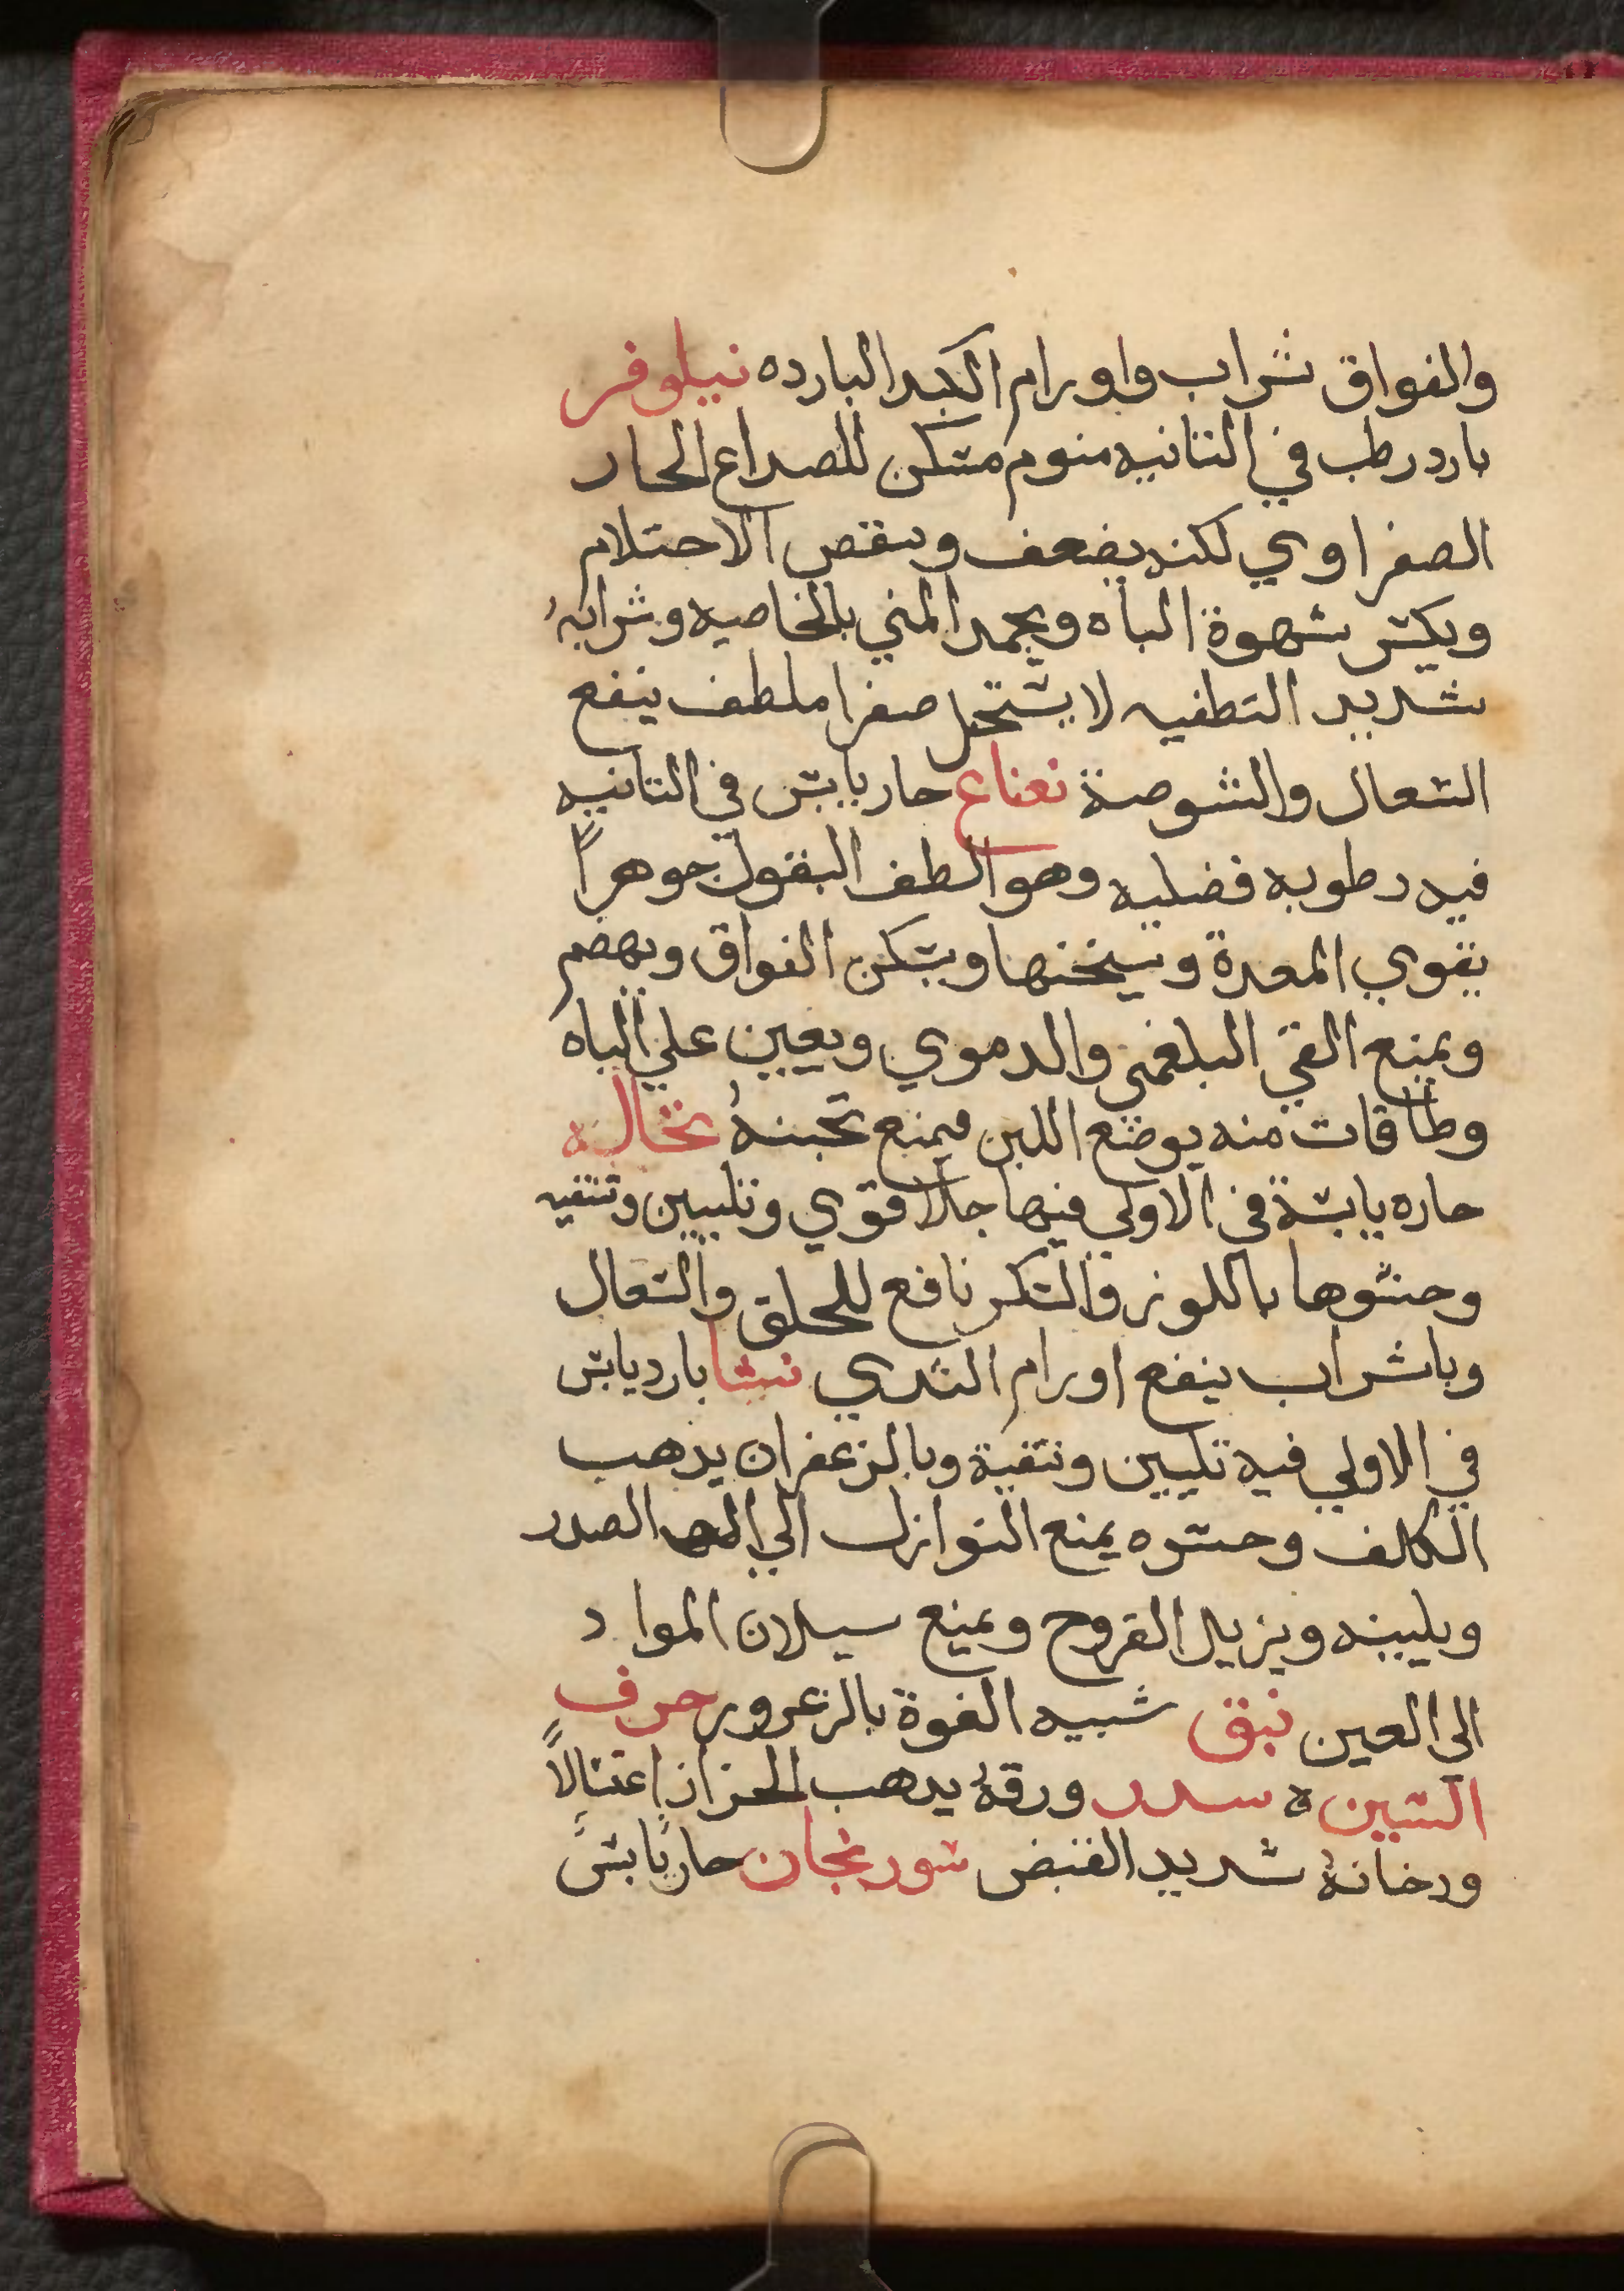 والفواق شراب واورام الكبد البارده نيلوفر
بارد رطب في الثانيه منوم مسكن للصداع الحار
الصفراوي لكنه يضعف وينقص الاحتلام
ويكسر شهوة الباه ويجمد المني بالخاصيه وشرابهُ
شديد التطفيه لا يستحيل صفرا ملطف ينفع
السعال والشوصة نعناع حار يابس في الثانيه
فيه رطوبه فضليه وهو الطف البقول جوهراً
يقوي المعدة ويسخنها ويسكن الفواق ويهضم
ويمنع القي البلغمي والدموي ويعين علي الباه
وطاقات منه يوضع اللبن فيمنع تجبنهُ نخاله
حاره يابسة في الاولي فيها جلا قوي وتليين وتنقيه
وحسوها باللوز والسكر نافع للحلق والسعال
وباشراب ينفع اورام الثدي نشا بارد يابس
في الاولي فيه تليين وتنقية وبالزعفران يذهب
الكلف وحسوه يمنع النوازل الي الصدر
ويلينه ويزيل القروح ويمنع سيلان المواد
الي العين نبق شبيه القوة بالزعرور حرف
السين ه سدر ورقهُ يدهب الحزاز اغتسالاً
ودخانهُ شديد القبض سورنجان حار يابس